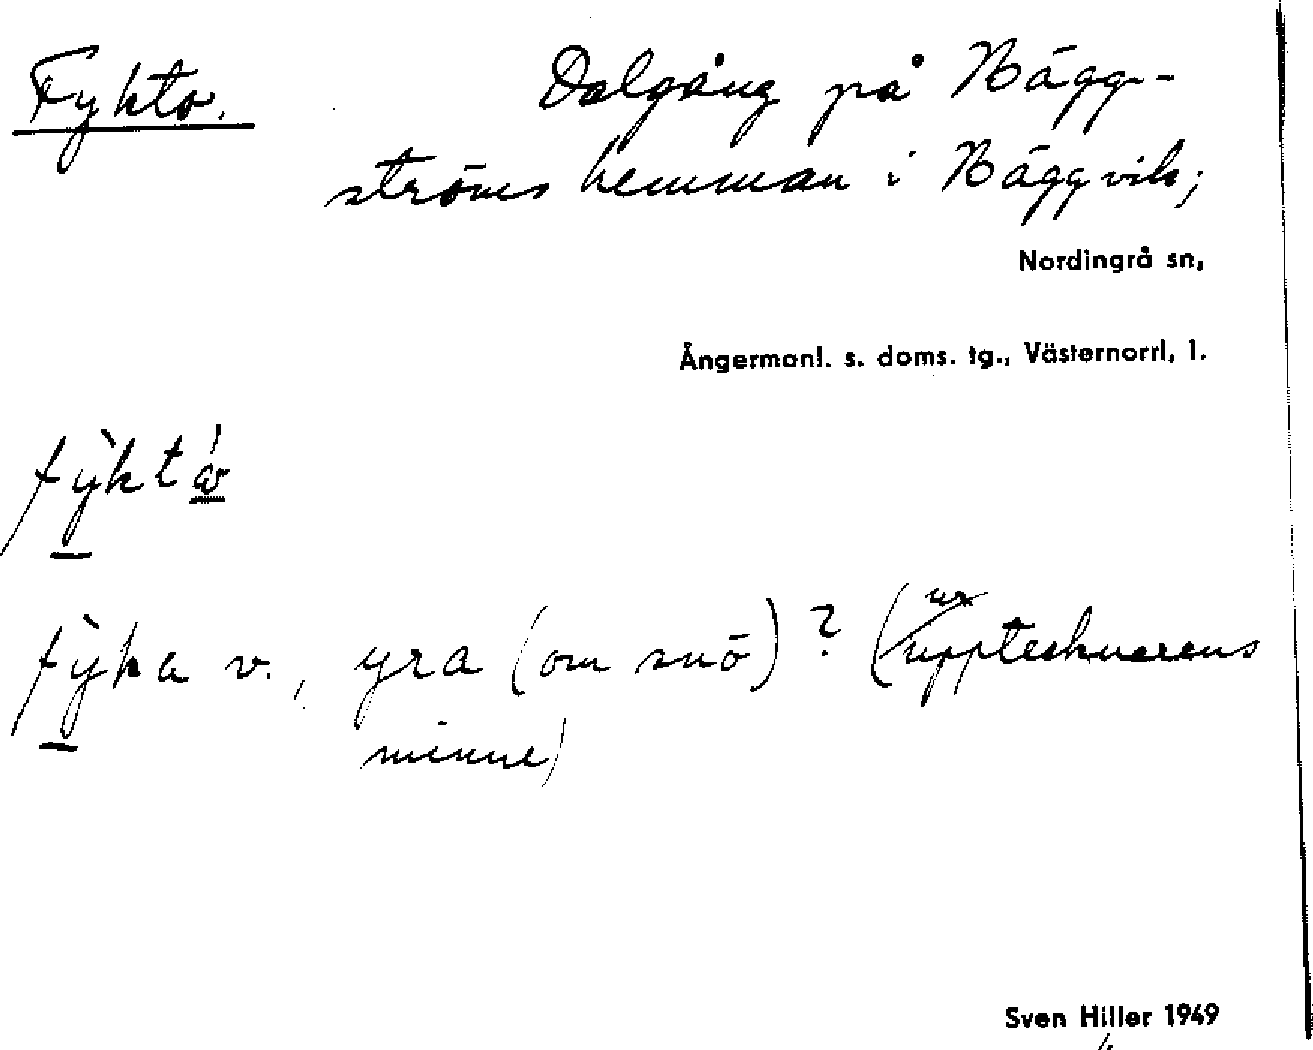 Fykto. Dalgång på Bägg-
ströms hemman i Bäggvik;
Nordingrå sn,
Ångermanl. s. doms. tg., Västernorrl, l.
fỳktå̀
fỳka v., yra (om snö)? (ur upptecknarens
minne)
Sven Hiller 1949